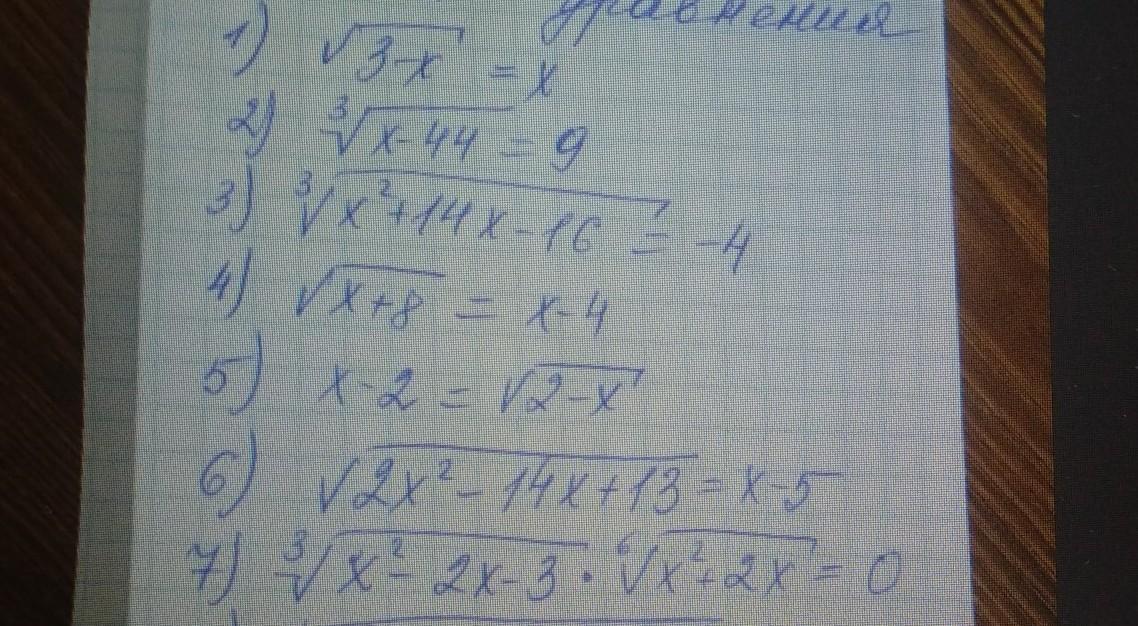 уравнения
1) √3-x = x
2) ∛x-44 = 9
3) ∛x²+14x-16 = -4
4) √x+8 = x-4
5) x-2 = √2-x
6) √2x²-14x+13 = x-5
7) ∛x²-2x-3 · ⁶√x²+2x = 0